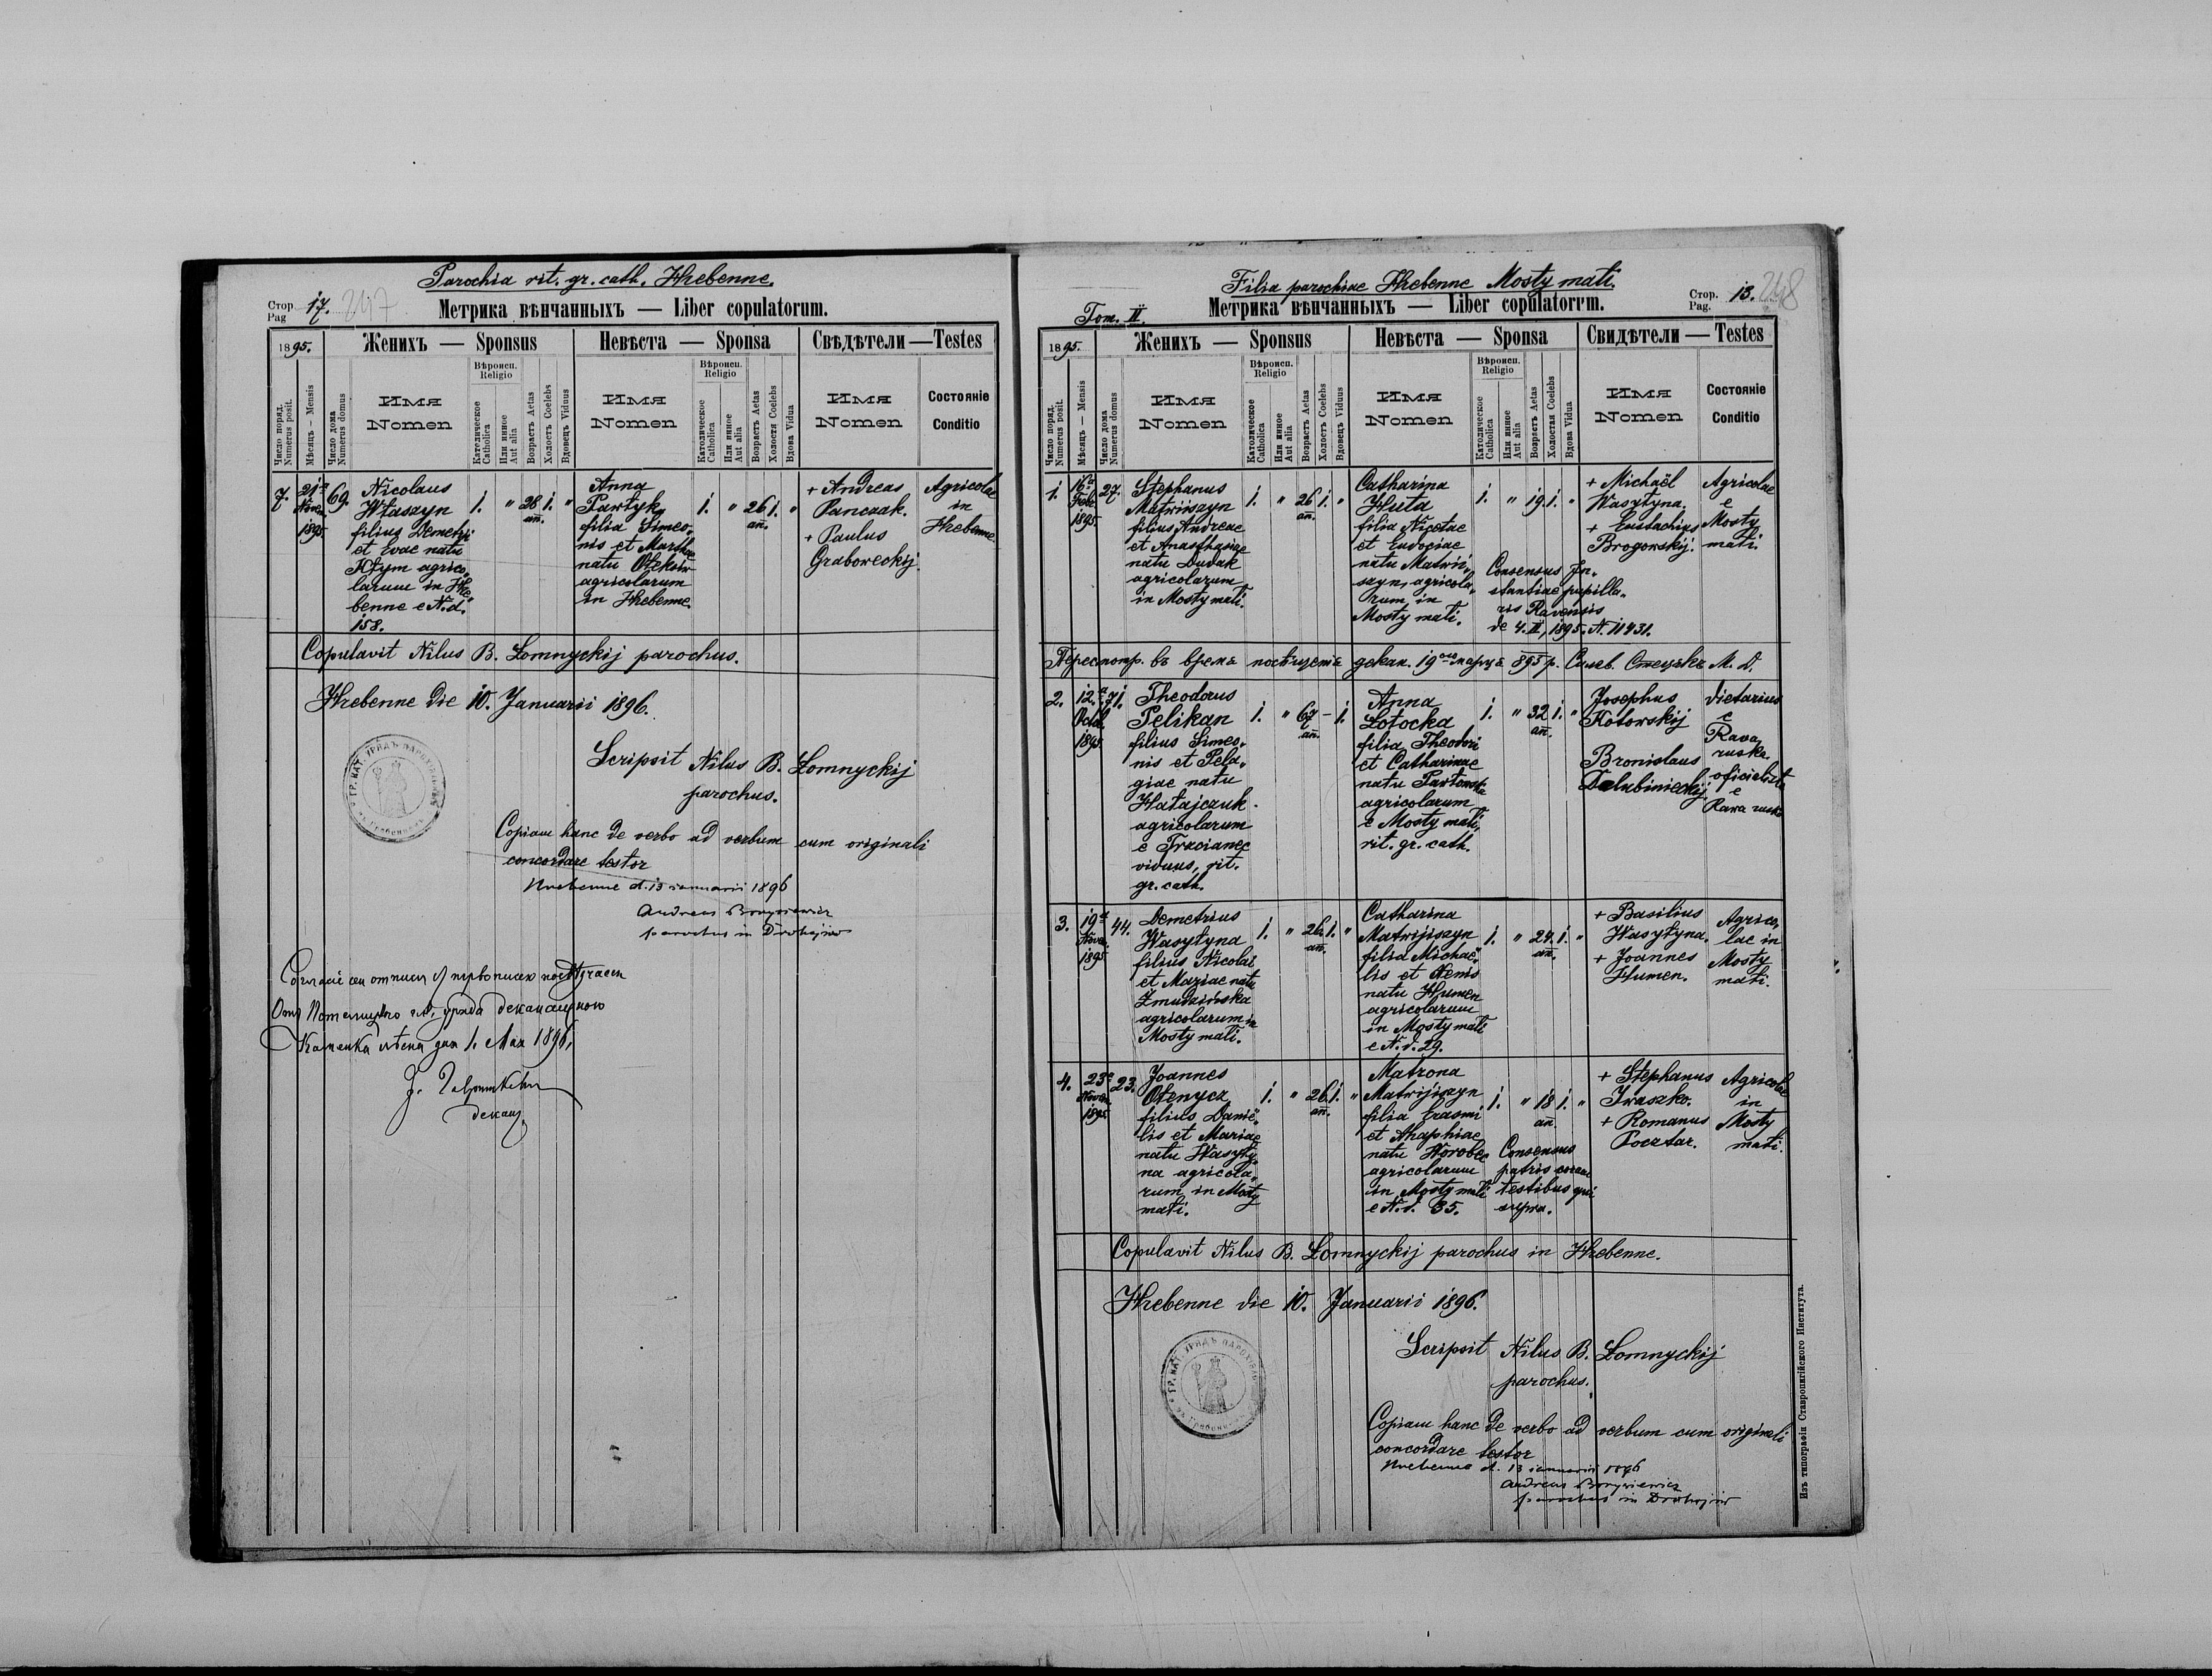 Parochia rit. gr. cath. Hrebenne.
Стор. Pag 17. 247
Метрика вѣнчанныхъ — Liber copulatorum.
1895.
Женихъ — Sponsus
Невѣста — Sponsa
Свѣдѣтели — Testes
Число поряд. Numerus posit.
Мѣсяцъ — Mensis
Число дома Numerus domus
Имя Nomen
Вѣроисп. Religio
Католическое Catholica
Или инное Aut alia
Возрастъ Aetas
Холостъ Coelebs
Вдовецъ Viduus
Имя Nomen
Вѣроисп. Religio
Католическое Catholica
Или инное Aut alia
Возрастъ Aetas
Холостя Coelebs
Вдова Vidua
Имя Nomen
Состояніе Conditio
7.
21a
Nove.
1895
69.
Nicolaus
Właszyn
filius Demetrji
et Evae natu
Kłym agrico„
larum in Hre„
benne e N. d.
158.
1. " 28 an. 1. "
Anna
Pawłyk
filia Simeo„
nis et Marthae
natu Ołeksiw
agricolarum
in Hrebenne.
1. " 26 an. 1. "
+ Andreas
Panczak.
+ Paulus
Graboreckij.
Agricolae
in
Hrebenne
Copulavit Nilus B. Łomnyckij parochus.
Hrebenne die 10. Januarii 1896.
Scripsit Nilus B. Łomnyckij
parochus.
Copiam hanc de verbo ad verbum cum originali
concordare testor
Hrebenne d. 13 januarii 1896
Andreas
parochus in
1. Мая 1896,
декан.
Filia parochiae Hrebenne Mosty małi.
Tom. II.
Стор. Pag. 18. 248
Метрика вѣнчанныхъ — Liber copulatorum.
1895.
Женихъ — Sponsus
Невѣста — Sponsa
Свидѣтели — Testes
Число поряд. Numerus posit.
Мѣсяцъ — Mensis
Число дома Numerus domus
Имя Nomen
Вѣроисп. Religio
Католическое Catholica
Или инное Aut alia
Возрастъ Aetas
Холостъ Coelebs
Вдовецъ Viduus
Имя Nomen
Вѣроисп. Religio
Католическое Catholica
Или инное Aut alia
Возрастъ Aetas
Холостая Coelebs
Вдова Vidua
Имя Nomen
Состояніе Conditio
1.
16a
Febr.
1895.
27.
Stephanus
Matrijiszyn
filius Andreae
et Anasthasiae
natu Dudak
agricolarum
in Mosty małi.
1. " 26 an. 1. "
Catharina
Huta
filia Nicetae
et Eudociae
natu Matrii„
szyn, agricola„
rum in
Mosty małi.
1. " 19. 1. "
Consensus In„
stantiae pupilla„
ris Ravensis
de 4. II, 1895. N. 11431.
+ Michaël
Wasyłyna.
+ Eustachius
Brogowskij.
Agricolae
e
Mosty
małi.
Пересмотр. въ время посѣщенія декан. 19ого марця 895 р. М. D.
2.
12.a
Octob.
1895.
71.
Theodorus
Pelikan
filius Simeo„
nis et Pela„
giae natu
Hałajczuk
agricolarum
e Trzcianec
viduus, rit.
gr. cath.
1. " 67 an. – 1.
Anna
Łotocka
filia Theodori
et Catharinae
natu
agricolarum
e Mosty małi,
rit. gr. cath.
1. " 32 an. 1. "
Josephus
Kotowskij
Bronislaus
dietarius
e
Rava
ruska.
oficialista
e
Rawa ruska
3.
19a
Nove.
1895
44.
Demetrius
Wasyłyna
filius Nicolai
et Mariae natu
Żmudzińska
agricolarum in
Mosty małi.
1. " 26 an. 1. "
Catharina
Matrijiszyn
filia Michaë„
lis et Xenis
natu Humen
agricolarum
in Mosty małi
e N. d. 29.
1. " 24. an. 1. "
+ Basilius
Wasyłyna.
+ Joannes
Humen.
Agrico„
lae in
Mosty
małi.
4.
23a
Novem.
1895
23.
Joannes
Ołenycz
filius Danië„
lis et Mariae
natu Wasyły„
na agricola„
rum in Mosty
małi.
1. " 26 an. 1. "
Matrona
Matrijiszyn
filia Erasmi
et Ahaphiae
natu Worobec
agricolarum
in Mosty małi
e N. d. 35.
1. " 18 an. 1. "
Consensus
patris coram
testibus qui
supra.
+ Stephanus
Iwaszko.
+ Romanus
Pocztar.
Agricolae
in
Mosty
małi.
Copulavit Nilus B. Łomnyckij parochus in Hrebenne.
Hrebenne die 10. Januarii 1896.
Scripsit Nilus B. Łomnyckij
parochus.
Copiam hanc de verbo ad verbum cum originali
concordare testor
Hrebenne d. 13 januarii 1896
Andreas
parochus in
Изъ типографіи Ставропигійского Института.